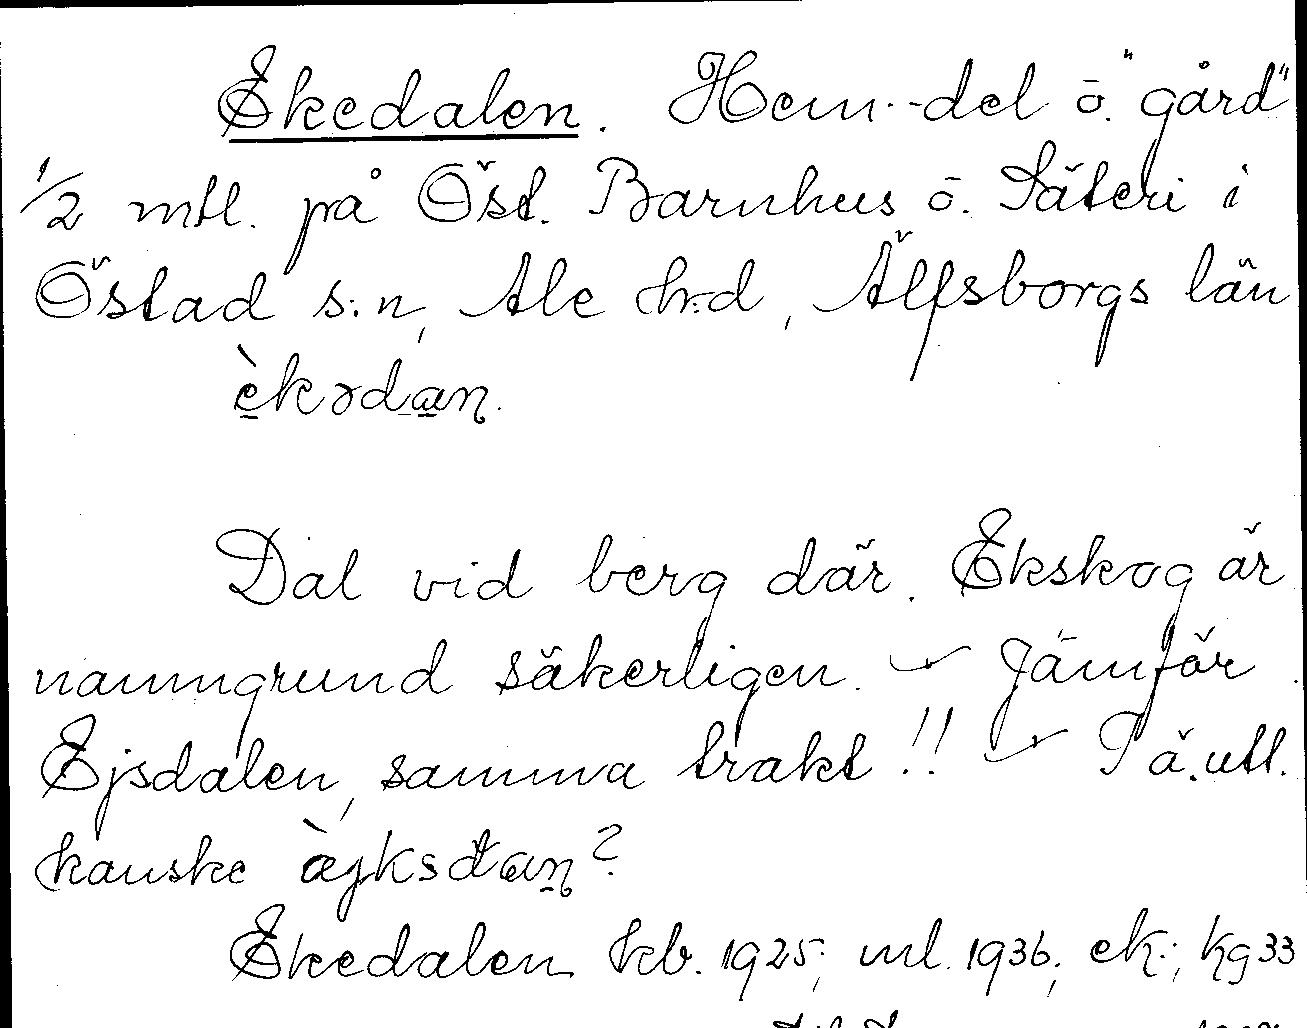 Ekedalen. Hem.-del o. "gård"
1/2 mtl. på Öst. Barnhus o. Säteri i
Östad s:n, Ale h:d, Älfsborgs län
èkədaṉ.
Dal vid berg där. Ekskog är
namngrund säkerligen. — Jämför
Ejsdalen, samma trakt!! — På ä.utl.
kanske àjksdaṉ?
Ekedalen kb. 1925; ml. 1936; ek.; kg 33